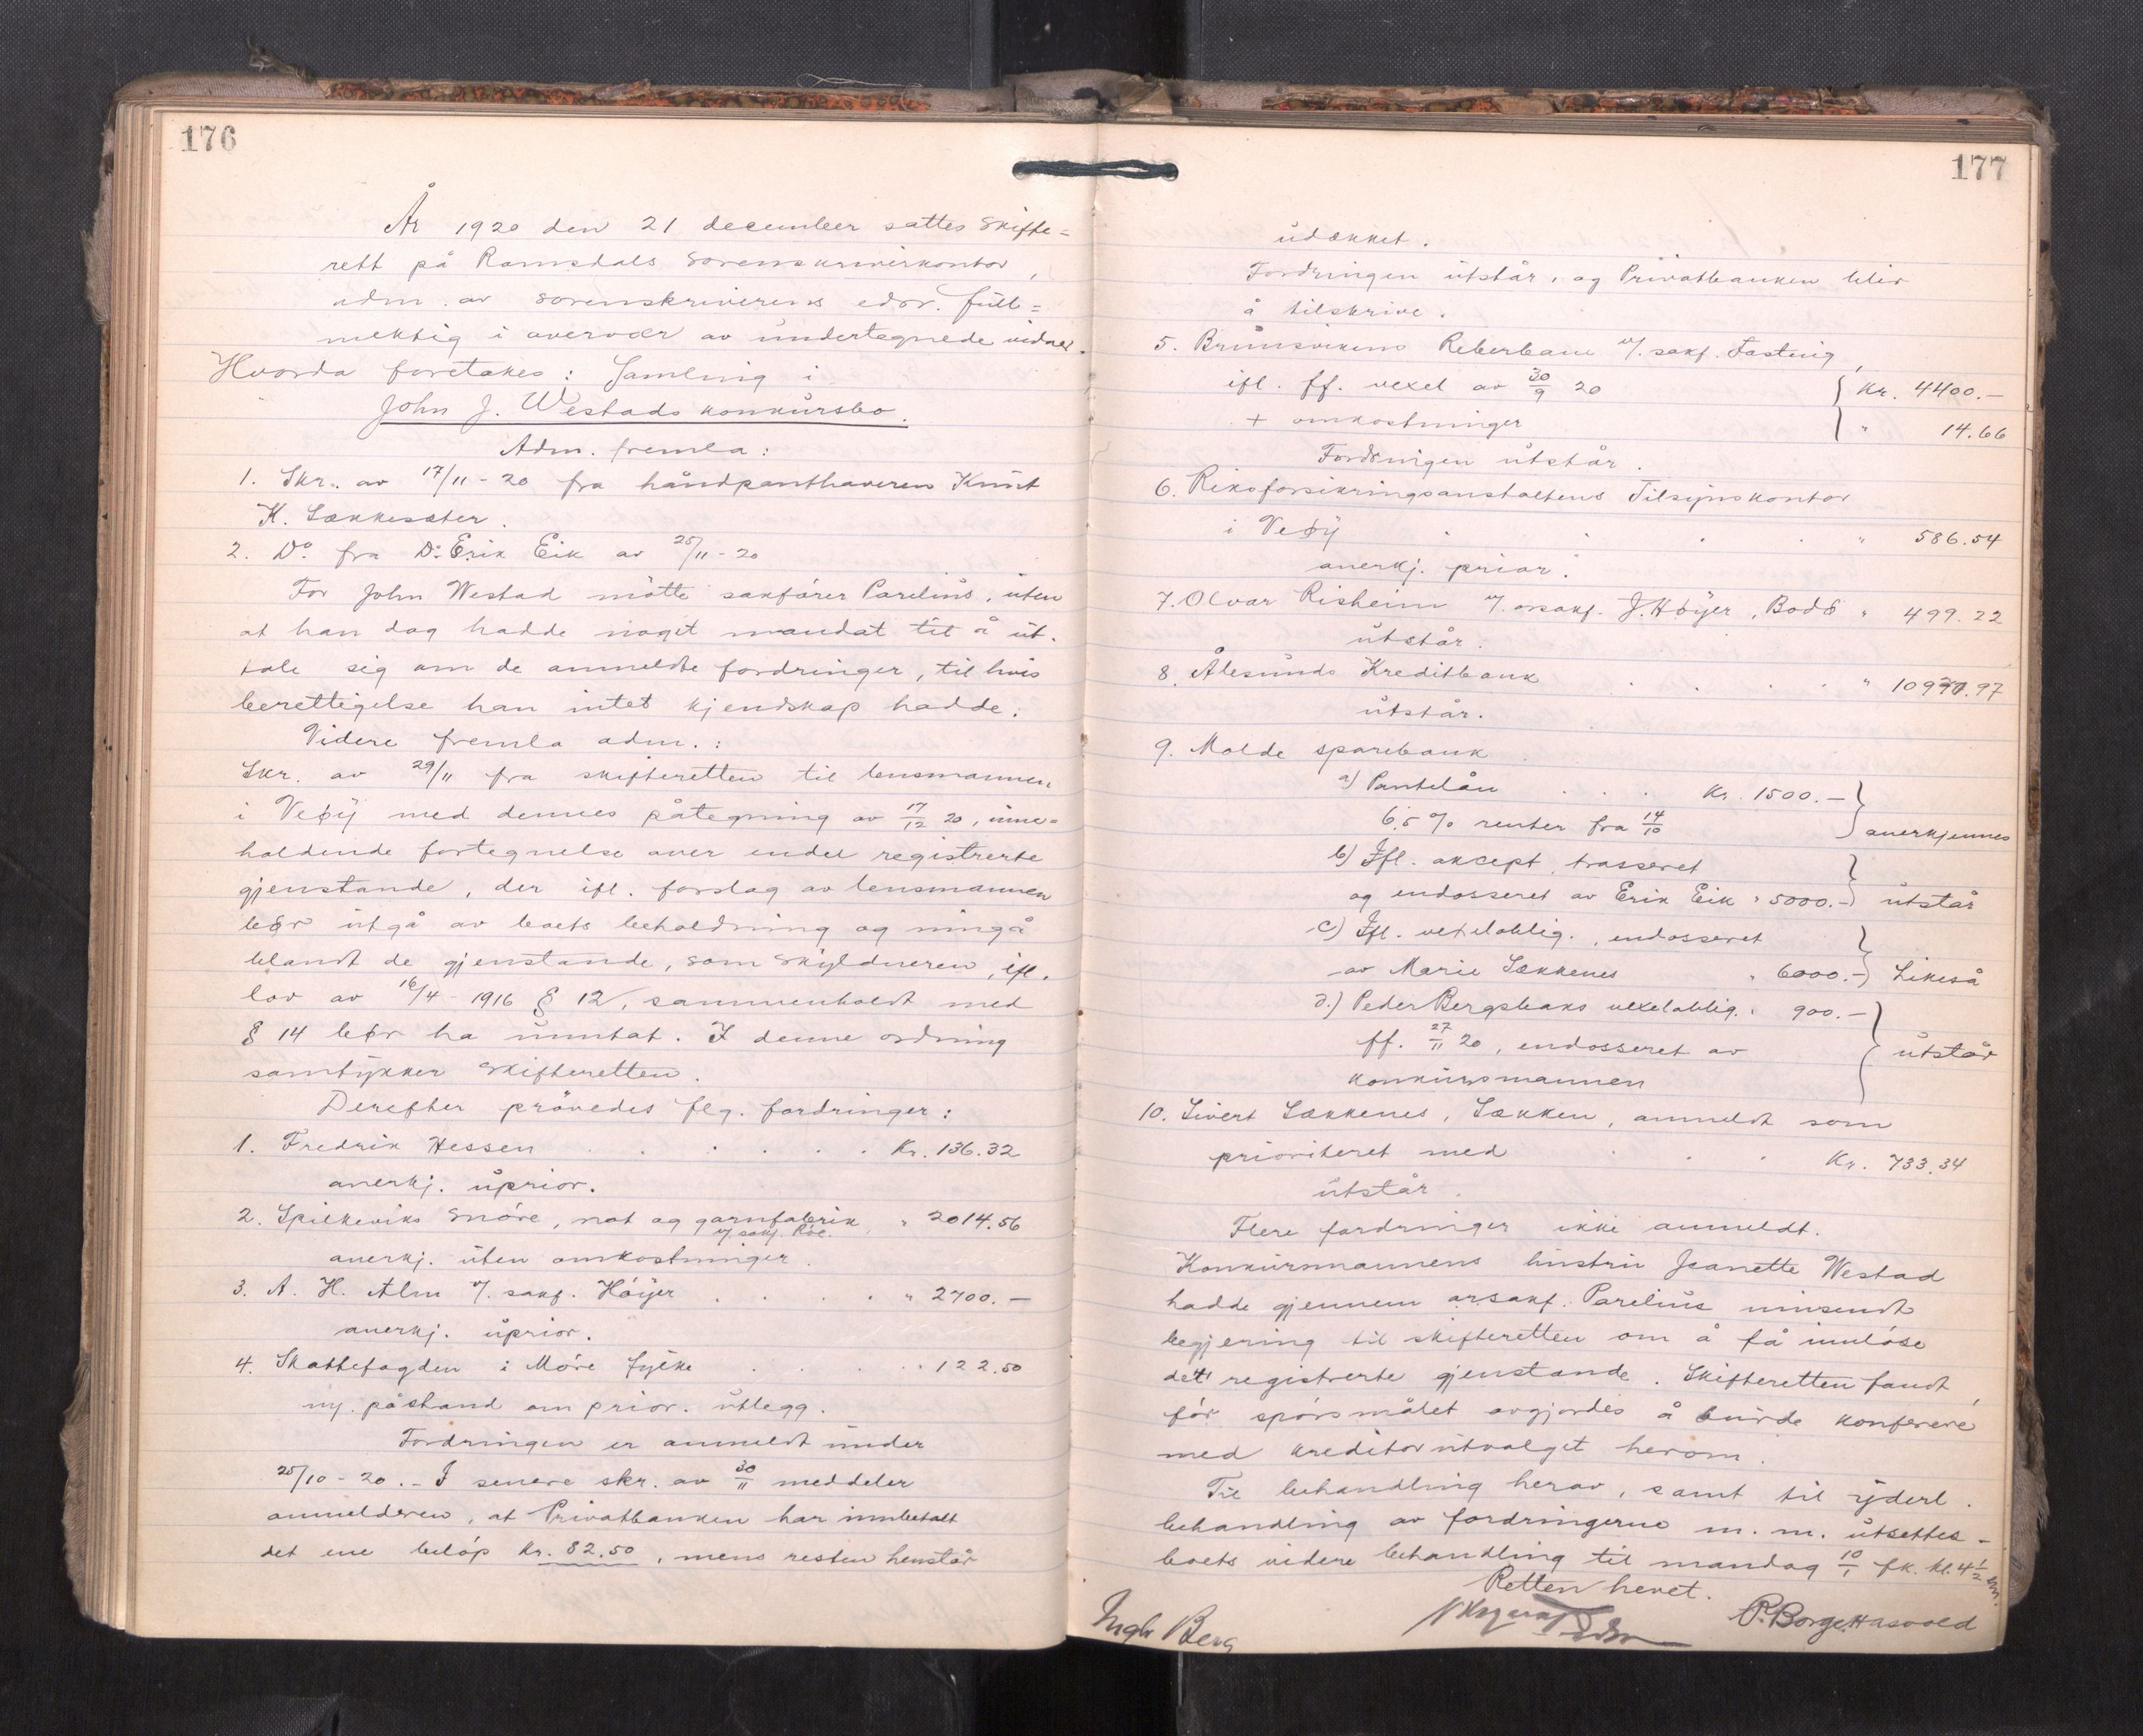 176
År 1920 den 21 december sattes skifte=
rett på Romsdals sorenskriverkontor,
adm. av sorenskriverens edsv. full=
mektig i overvær av undertegnede vidner.
Hvorda foretakes: Samling i
John J. Westads konkursbo.
Adm. fremla:
1. Skr. av 17/11-20 fra håndpanthaveren Knut
K. Sækkesæter.
2. Do. fra Do. Erik Eik av 25/11-20
For John Westad møtte sakfører Parelius, uten
at han dog hadde noget mandat til å ut-
tale sig om de anmeldte fordringer, til hvis
berettigelse han intet kjendskap hadde.
Videre fremla adm.:
Skr. av 29/11 fra skifteretten til lensmannen
i Veøy med dennes påtegning av 17/12 20, inne=
holdende fortegnelse over endel registrerte
gjenstande, der ifl. forslag av lensmannen
bør utgå av boets beholdning og inngå
blandt de gjenstande, som skyldneren, ifl.
lov av 16/4-1916 § 12, sammenholdt med
§ 14 bør ha unntat. I denne ordning
samtykker skifteretten.
Derefter prøvedes flg. fordringer:
1. Fredrik Hessen . . . . . Kr. 136.32
anerkj. uprior.
2. Spilkeviks snøre, not og garnfabrik " 2014.56
v/ sakf. Röe.
anerkj. uten omkostninger.
3. A. H. Alm v/. sakf. Høyer . . . . " 2700.—
anerkj. uprior.
4. Skattefogden i Møre fylke . . . " 122.50
m/. påstand om prior. utlegg.
Fordringen er anmeldt under
25/10-20.- I senere skr. av 30/11 meddeler
anmelderen, at Privatbanken har innbetalt
det ene beløp Kr. 82.50, mens resten henstår
177
udækket.
Fordringen utstår, og Privatbanken blir
å tilskrive.
5. Brunsvikens Reberbane v/. sakf. Fasting,
ifl. ff. vexel av 30/9 20 { Kr. 4400.—
+ omkostninger { " 14.66
Fordringen utstår.
6. Riksforsikringsanstaltens Tilsynskontor
i Veøy . . . . . " 586.54
anerkj. prior.
7. Olvar Risheim v/. orsakf. J. Høyer, Bodø " 499.22
utstår.
8. Ålesunds Kreditbank . . . . " 10970.97
utstår.
9. Molde sparebank
a) Pantelån . . . Kr. 1500.— }
6.5 % renter fra 14/10 } anerkjennes
b) Ifl. akcept, trasseret }
og endosseret av Erik Eik " 5000.- } utstår
c) Ifl. vekseloblig., endosseret }
av Marie Sækkenes " 6000.- } Likeså
d.) Peder Bergsbaks vexeloblig. " 900.— }
ff. 27/11 20, endosseret av } utstår
konkursmannen
10. Sivert Sækkenes, Sækken, anmeldt som
prioriteret med . . . Kr. 733.34
utstår.
Flere fordringer ikke anmeldt.
Konkursmannens hustru Jeanette Westad
hadde gjennem orsakf. Parelius innsendt
begjering til skifteretten om å få innløse
det registrerte gjenstande. Skifteretten fandt,
før spørsmålet avgjordes å burde konferere
med kreditorutvalget herom.
Til behandling herav, samt til yderl.
behandling av fordringerne m. m. utsettes
boets videre behandling til mandag 10/1 fk. kl. 4 1/2 em.
Retten hevet.
Ingb Berg P. Borge Hasvold